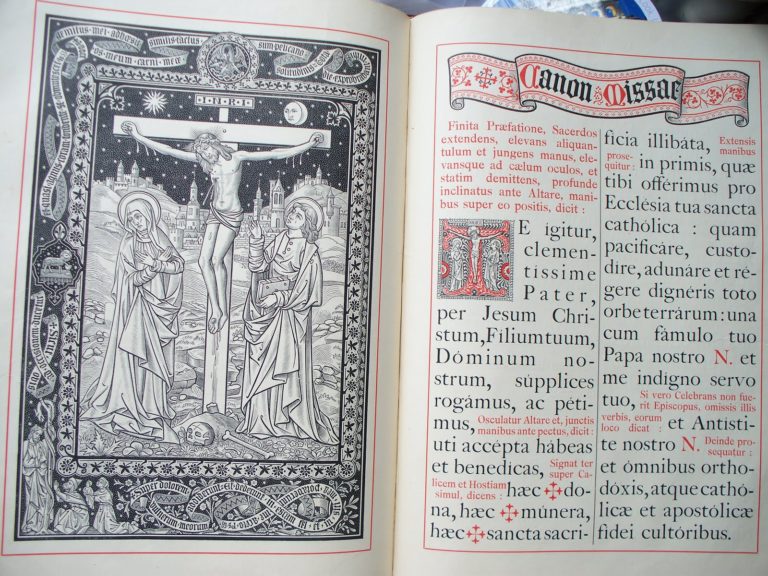 gemitus mei adhæsit
similis factus
sum pelicano
os meum carni meæ
solitudinis
I·N·R·I
Super dolorem
vulnerum meorum
Canon Missae
Finita Præfatione, Sacerdos
extendens, elevans aliquan-
tulum et jungens manus, ele-
vansque ad cælum oculos, et
statim demittens, profunde
inclinatus ante Altare, mani-
bus super eo positis, dicit :
E igitur,
clemen-
tissime
Pater,
per Jesum Chri-
stum, Fílium tuum,
Dóminum no-
strum, súpplices
rogámus, ac péti-
mus, Osculatur Altare et, junctis
manibus ante pectus, dicit :
uti accépta hábeas
et benedícas, Signat ter
super Ca-
licem et Hostiam
simul, dicens : hæc ✠ do-
na, hæc ✠ múnera,
hæc ✠ sancta sacri-
fícia illibáta, Extensis
manibus
prose-
quitur : in primis, quæ
tibi offérimus pro
Ecclésia tua sancta
cathólica : quam
pacificáre, custo-
díre, adunáre et ré-
gere dignéris toto
orbe terrárum : una
cum fámulo tuo
Papa nostro N. et
me indigno servo
tuo, Si vero Celebrans non fue-
rit Episcopus, omissis illis
verbis, eorum
loco dicat : et Antísti-
te nostro N. Deinde pro-
sequatur :
et ómnibus ortho-
dóxis, atque cathó-
licæ et apostólicæ
fídei cultóribus.